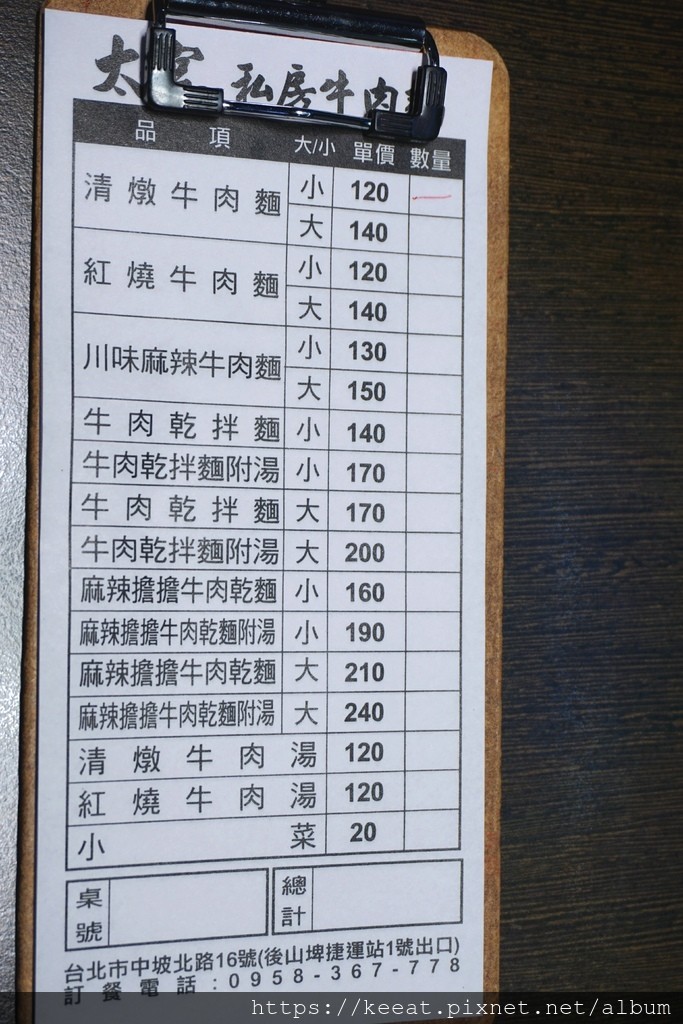 太 私房牛肉
品 項 大/小 單價 數量
清燉牛肉麵 小 120
大 140
紅燒牛肉麵 小 120
大 140
川味麻辣牛肉麵 小 130
大 150
牛肉乾拌麵 小 140
牛肉乾拌麵附湯 小 170
牛肉乾拌麵 大 170
牛肉乾拌麵附湯 大 200
麻辣擔擔牛肉乾麵 小 160
麻辣擔擔牛肉乾麵附湯 小 190
麻辣擔擔牛肉乾麵 大 210
麻辣擔擔牛肉乾麵附湯 大 240
清燉牛肉湯 120
紅燒牛肉湯 120
小菜 20
桌號 總計
台北市中坡北路16號(後山埤捷運站1號出口)
訂餐電話:0958-367-778
https://keeat.pixnet.net/album